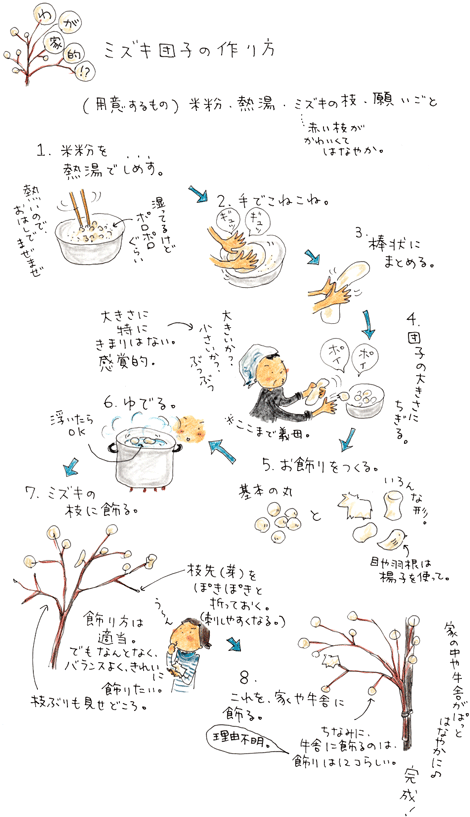 わが家的!?
ミズキ団子の作り方
(用意するもの) 米粉・熱湯・ミズキの枝・願いごと
赤い枝が
かわいくて
はなやか。
1. 米粉を
熱湯でしめす。
熱いので、
おはしで
まぜまぜ
湿ってるけど
ポロポロ
ぐらい
2. 手でこねこね。
ギュッ
ギュッ
3. 棒状に
まとめる。
4. 団子の大きさに
ちぎる。
ポイ
ポイ
大きいか?
小さいか?
ぶつぶつ
大きさに
特に
きまりはない。
感覚的。
※ここまで義母。
5. お飾りをつくる。
基本の丸
と
いろんな形。
目や羽根は
楊子を使って。
6. ゆでる。
浮いたら
OK
7. ミズキの
枝に飾る。
枝先(芽)を
ぽきぽきと
折っておく。
(刺しやすくなる。)
う〜ん
飾り方は
適当。
でもなんとなく、
バランスよく、きれいに
飾りたい。
枝ぶりも見せどころ。
8.
これを、家や牛舎に
飾る。
理由不明。
ちなみに、
牛舎に飾るのは、
飾りは12コらしい。
家の中や牛舎がぱっと
はなやかに♪
完成!